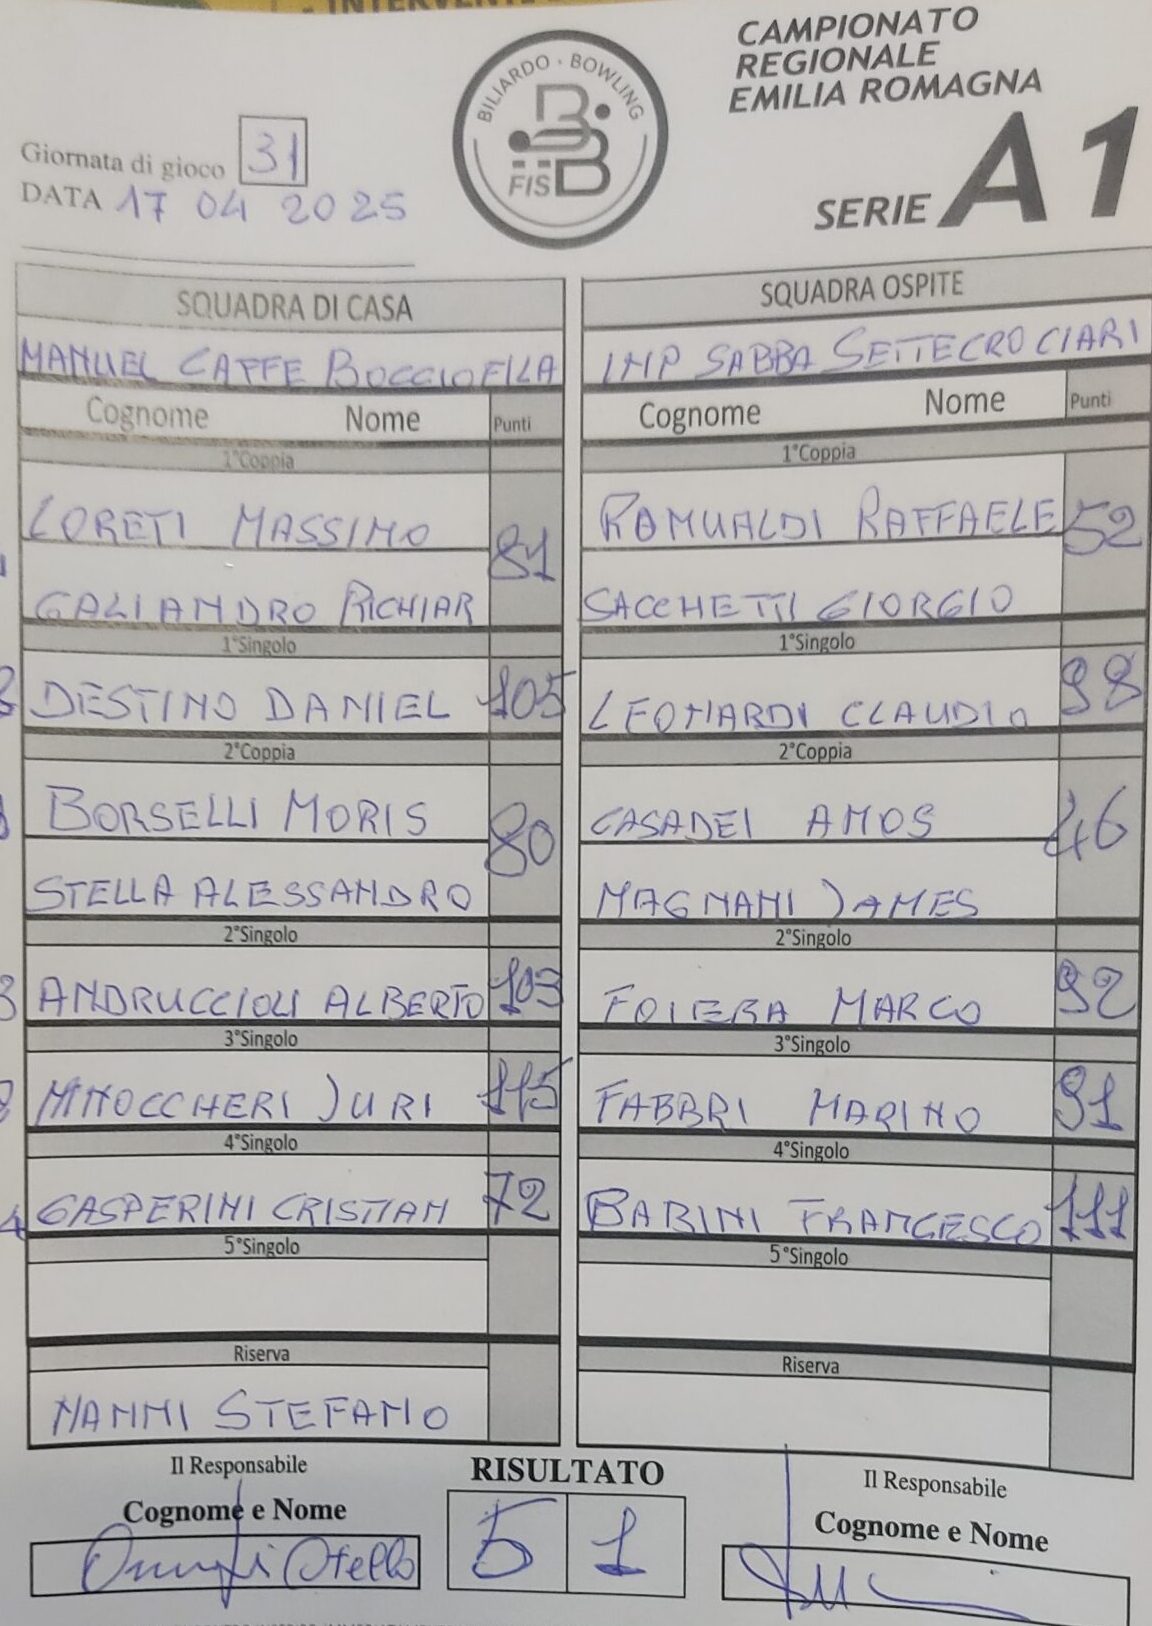 CAMPIONATO
REGIONALE
EMILIA ROMAGNA
SERIE A1
BILIARDO · BOWLING
FISBB
Giornata di gioco 31
DATA 17 04 2025
SQUADRA DI CASA
MANUEL CAFFE BOCCIOFILA
Cognome Nome Punti
1°Coppia
LORETI MASSIMO 81
GALIANDRO RICHIAR
1°Singolo
DESTINO DANIEL 105
2°Coppia
BORSELLI MORIS 80
STELLA ALESSANDRO
2°Singolo
ANDRUCCIOLI ALBERTO 103
3°Singolo
MNOCCHERI JURI 115
4°Singolo
GASPERINI CRISTIAN 72
5°Singolo
Riserva
NANNI STEFANO
Il Responsabile
Cognome e Nome
Otello
SQUADRA OSPITE
IMP SABBA SETTECROCIARI
Cognome Nome Punti
1°Coppia
ROMUALDI RAFFAELE 52
SACCHETTI GIORGIO
1°Singolo
LEONARDI CLAUDIO 98
2°Coppia
CASADEI AMOS 46
MAGNANI JAMES
2°Singolo
FOIERA MARCO 92
3°Singolo
FABBRI MARINO 91
4°Singolo
BABINI FRANCESCO 111
5°Singolo
Riserva
RISULTATO
5 1
Il Responsabile
Cognome e Nome